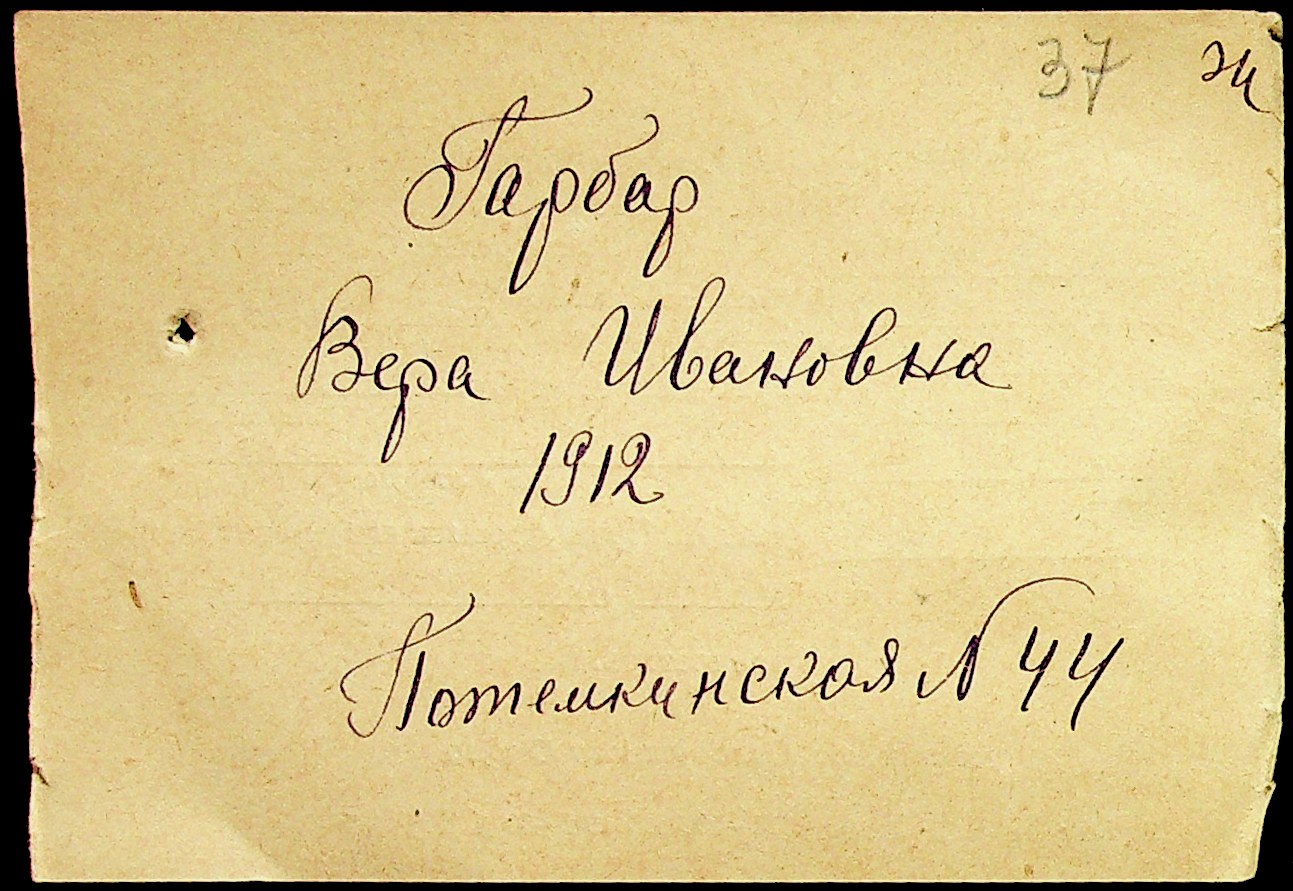 37
Гарбар
Вера Ивановна
1912
Потемкинская N 44